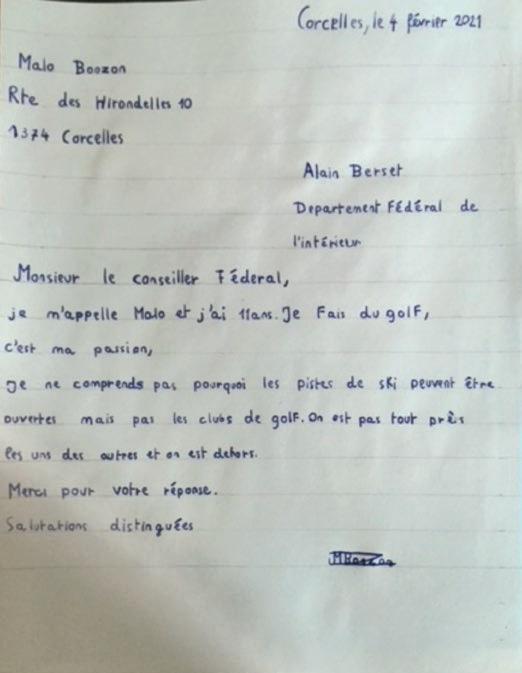 Corcelles, le 4 février 2021
Malo Boozon
Rte des Hirondelles 10
1374 Corcelles
Alain Berset
Departement Fédéral de
l'intérieur
Monsieur le conseiller Féderal,
je m'appelle Malo et j'ai 11ans. Je Fais du golf,
c'est ma passion,
Je ne comprends pas pourquoi les pistes de ski peuvent être
ouvertes mais pas les clubs de golf. On est pas tout près
les uns des autres et on est dehors.
Merci pour votre réponse.
Salutations distinguées